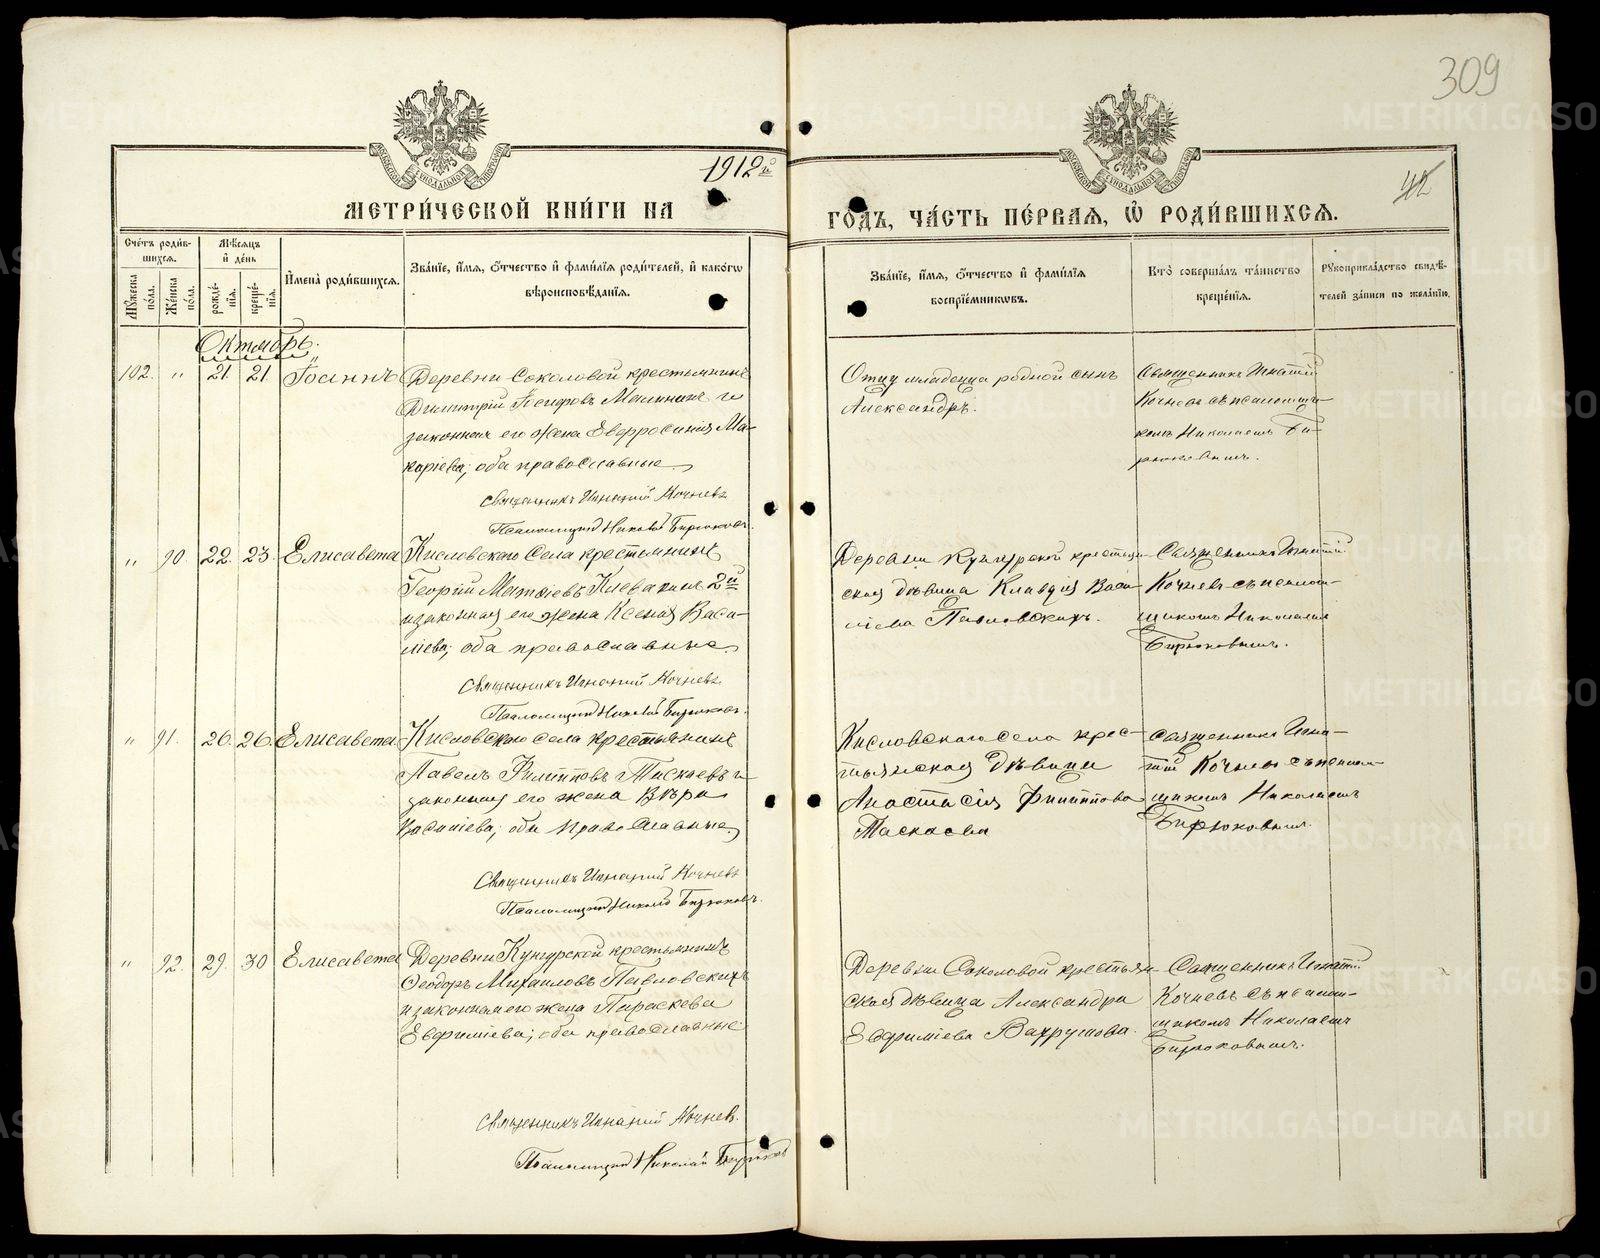 309
1912й
42
МЕТРИ́ЧЕСКОЙ КНИ́ГИ НА
ГО́ДЪ, ЧА́СТЬ ПЕ́РВАЯ, Ѡ҆ РОДИ́ВШИХСЯ.
Сче́тъ роди́вшихся.
Мꙋ́жеска по́ла.
Же́нска по́ла.
Мѣ́сяцъ и҆ де́нь
рожде́нїя.
креще́нїя.
И҆мена̀ роди́вшихся.
Зва́нїе, и҆́мя, ѻ҆́тчество и҆ фами́лїя роди́телей, и҆ како́гѡ
вѣроисповѣ́данїя.
Зва́нїе, и҆́мя, ѻ҆́тчество и҆ фами́лїя
воспрїе́мниковъ.
Кто̀ соверша́лъ та́инство
креще́нїя.
Рꙋкоприкла́дство свидѣ́-
телей за́писи по жела́нїю.
Октябрь.
102. " 21. 21. Іоаннъ
Деревни Соколовой крестьянинъ
Димитрій Іосифовъ Малининъ и
законная его жена Евфросинія Ма-
каріева; оба православные
Священникъ Игнатій Кочневъ
Псаломщикъ Николай Бирюковъ.
Отцу младенца родной сынъ
Александръ.
Священникъ Игнатій
Кочневъ съ псаломщи-
комъ Николаемъ Би-
рюковымъ.
" 90. 22. 23. Елисавета
Кисловскаго села крестьянинъ
Георгій Матѳіевъ Клевакинъ 2й
и законная его жена Ксенія Васи-
ліева; оба православные
Священникъ Игнатій Кочневъ.
Псаломщикъ Николай Бирюковъ.
Деревни Кунгурской крестьян-
ская дѣвица Клавдія Васи-
ліева Павловскихъ.
Священникъ Игнатій
Кочневъ съ псалом-
щикомъ Николаемъ
Бирюковымъ.
" 91. 26. 26. Елисавета
Кисловскаго села крестьянинъ
Павелъ Филипповъ Таскаевъ и
законная его жена Вѣра
Василіева; оба православные
Священникъ Игнатій Кочневъ
Псаломщикъ Николай Бирюковъ.
Кисловскаго села крес-
тьянская дѣвица
Анастасія Филиппова
Таскаева
Священникъ Игна-
тій Кочневъ съ псалом-
щикомъ Николаемъ
Бирюковымъ.
" 92. 29. 30 Елисавета
Деревни Кунгурской крестьянинъ
Ѳеодоръ Михаиловъ Павловскихъ
и законная его жена Параскева
Евфиміева; оба православные
Священникъ Игнатій Кочнев.
Псаломщикъ Николай Бирюков
Деревни Соколовой крестьян-
ская дѣвица Александра
Евфиміева Вахрушова.
Священникъ Игнатій
Кочневъ съ псалом-
щикомъ Николаемъ
Бирюковымъ.
METRIKI.GASO-URAL.RU